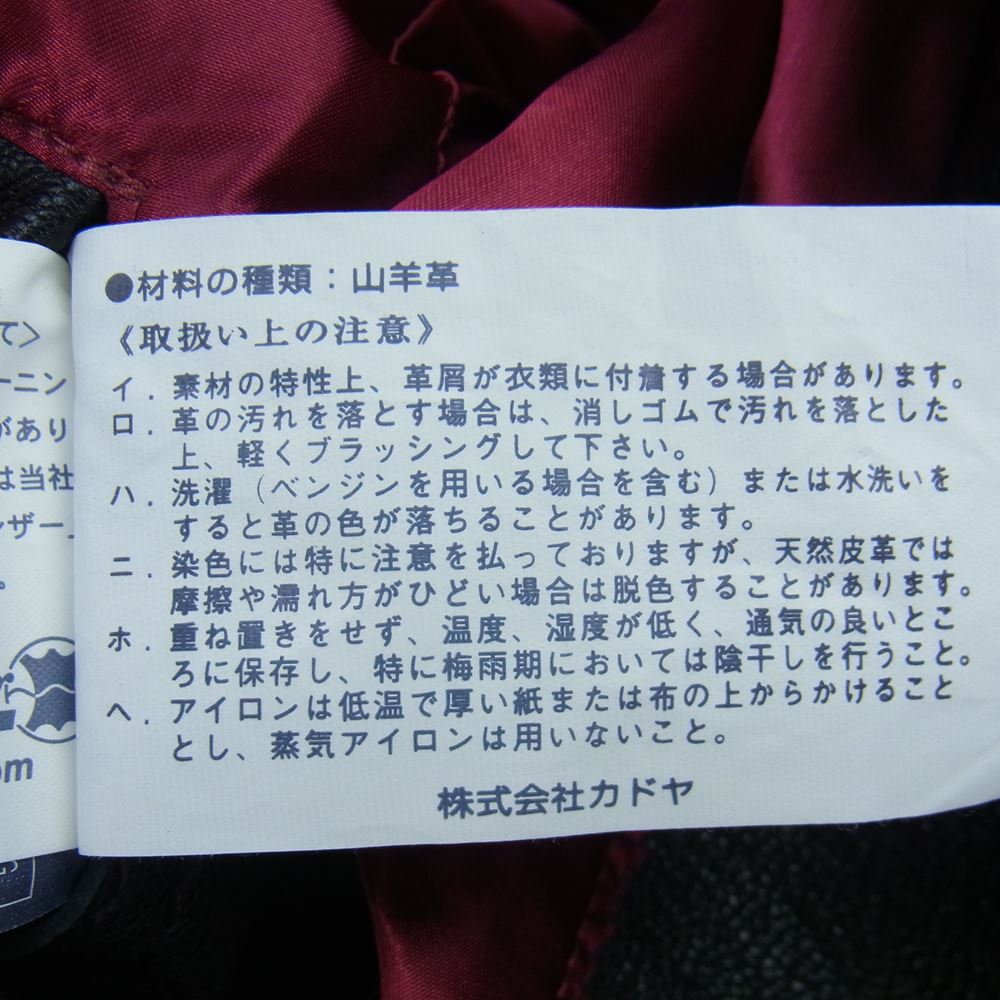 ●材料の種類：山羊革
《取扱い上の注意》
イ．素材の特性上、革屑が衣類に付着する場合があります。
ロ．革の汚れを落とす場合は、消しゴムで汚れを落とした
上、軽くブラッシングして下さい。
ハ．洗濯（ベンジンを用いる場合を含む）または水洗いを
すると革の色が落ちることがあります。
ニ．染色には特に注意を払っておりますが、天然皮革では
摩擦や濡れ方がひどい場合は脱色することがあります。
ホ．重ね置きをせず、温度、湿度が低く、通気の良いとこ
ろに保存し、特に梅雨期においては陰干しを行うこと。
ヘ．アイロンは低温で厚い紙または布の上からかけること
とし、蒸気アイロンは用いないこと。
株式会社カドヤ
て＞
ーニン
があり
は当社
ンザー
。
om